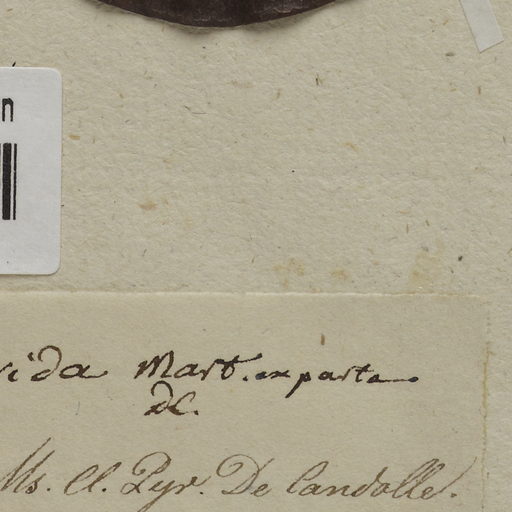 n
vida Mart. ex parte
DC.
Ms. Cl. Pyr. De Candolle.